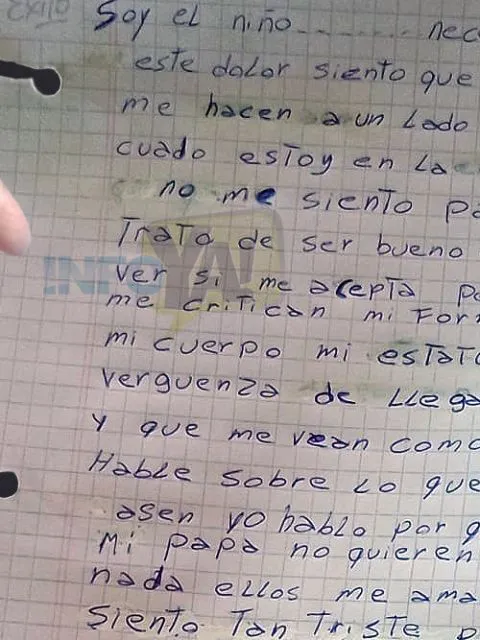 Exito
Soy el niño ........ nec
este dolor siento que
me hacen a un lado
cuado estoy en la
no me siento pa
Trato de ser bueno
INFO YA!
ver si me acepta po
me critican mi For
mi cuerpo mi estat
verguenza de llega
y que me vean como
Hable sobre lo que
asen yo hablo por q
Mi papa no quieren
nada ellos me ama
siento tan triste p